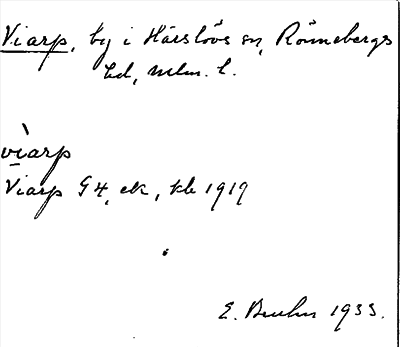 Viarp, by i Härslövs sn, Rönnebergs
hd, mlm. l.
vìarp
Viarp G4, ek, kb 1919
E. Bruhn 1933.